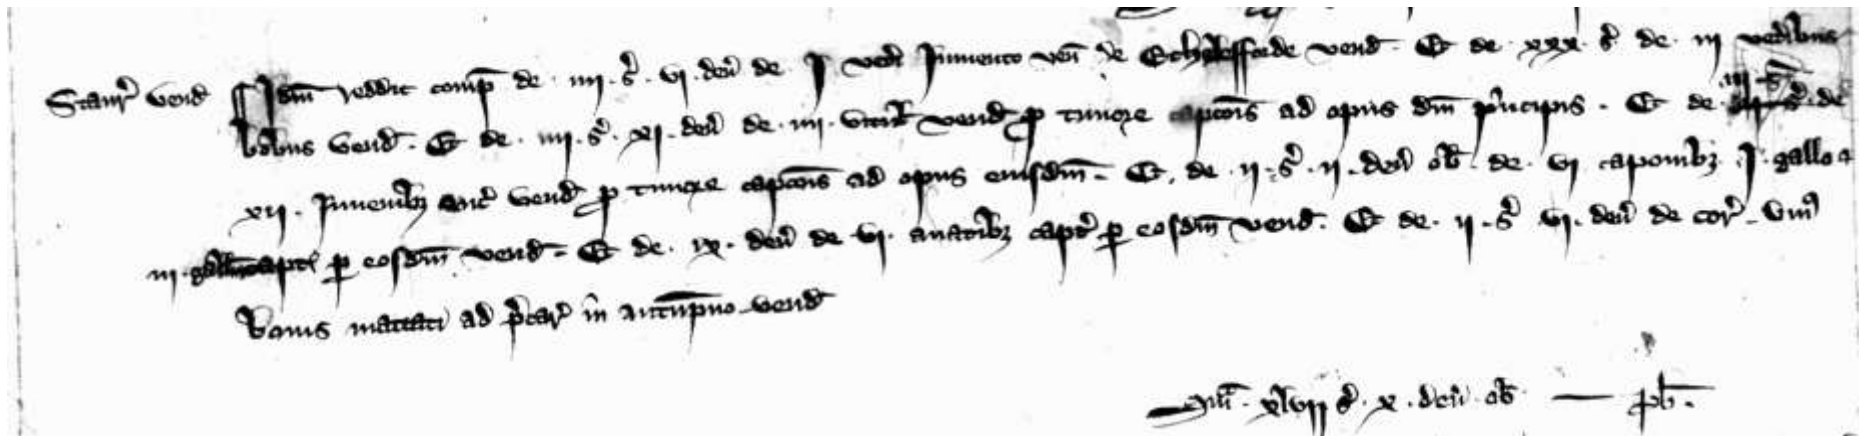 Staur̃ vend̃ Idm̃ reddit comp̃ de · iiii · s̃ · vi · deñ de · I · vet̃i Jumento veñ de Echelesforde vend̃ · Et de · xxx · s̃ · de · iii vet̃ibus
bobus vend̃ · Et de · iiii · s̃ · xi · deñ de · iiii · vitul̃ vend̃ p̱ timore capcõis ad opus dm̃ p̃ncipis · Et de · iiii · s̃ · de
xii · Juuenibꝫ auc̃ vend̃ p̱ timore capcõis ad opus eiusdm̃ · Et · de · ii · s̃ · ii · deñ ob̃ · de · vi caponibꝫ · I · gallo ⁊
iii · galliñ capt̃ p̱ eosdm̃ vend̃ · Et de · ix · deñ de vi · anatibꝫ capt̃ p̱ eosdm̃ vend̃ · Et de · ii · s̃ vi · deñ de cor̃ · vni᷒
bouis mactati ad p̃car̃ in autumpno vend̃
Sum̃ · xlvii s̃ · x · deñ · ob̃ · — pb̃ ·